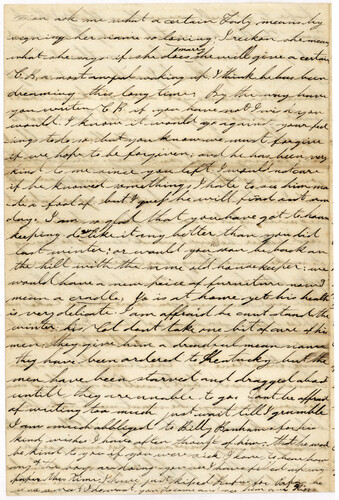 man ask me what a certain Lady means by
signing her name so loving, I reckon she means
what she says if she does marry she will give a certain
C.B. a most awful waking up. I think he has been
dreaming this long time. By the way have
you written to C.B. if you have not I wish you
would. I know it would go against your feel
ings to do so, but you know we must forgive
if we hope to be forgiven; and he has been very
kind to me since you left I would not care
if he knowed something, I hate to see him ma
de a fool of but I guess he will find out some
day. I am so glad that you have got to house
keeping do like it any better than you did
last winter; or would you soon be back on
the hill with the same old housekeeper; we
would have a new peice of furniture now I
mean a cradle. Jo is at home yet his health
is very delicate I am affraid he cant stand the
winter his Col dont take one bit of care of his
men they give him a dreadful mean name
they have been ordered to Kentucky but the
men have been starved and dragged about
untill they are unable to go. Dont be affraid
of writing too much just wait till I grumble
I am much obbliged to Billy for his
kind wishes I have often thought of him; that he would
be kind to you if you were sick
you are
paper this time I have